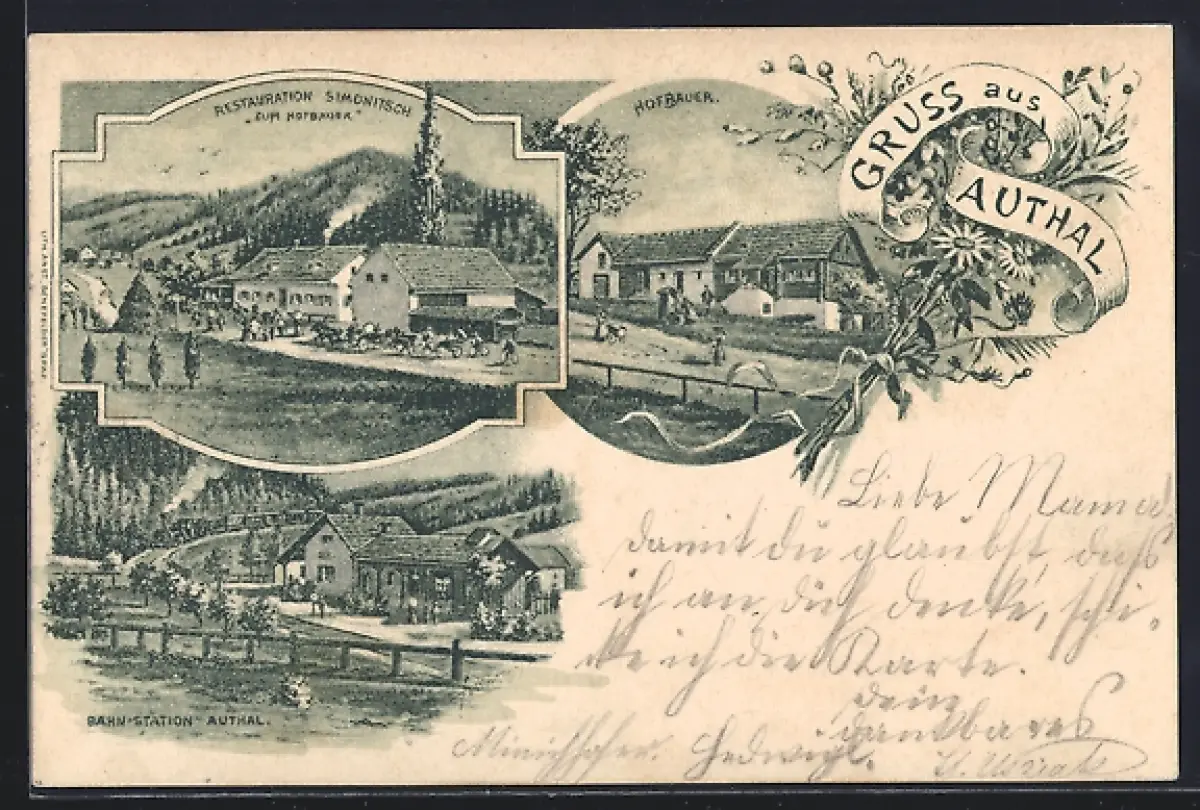 RESTAURATION SIMONITSCH
"ZUM HOFBAUER"
HOFBAUER.
GRUSS aus
AUTHAL
BAHN-STATION AUTHAL.
Liebe Mama!
damit du glaubst, daß
ich an dich denke, schi-
cke ich die Karte.
dein
dankbares
Hedwigl.